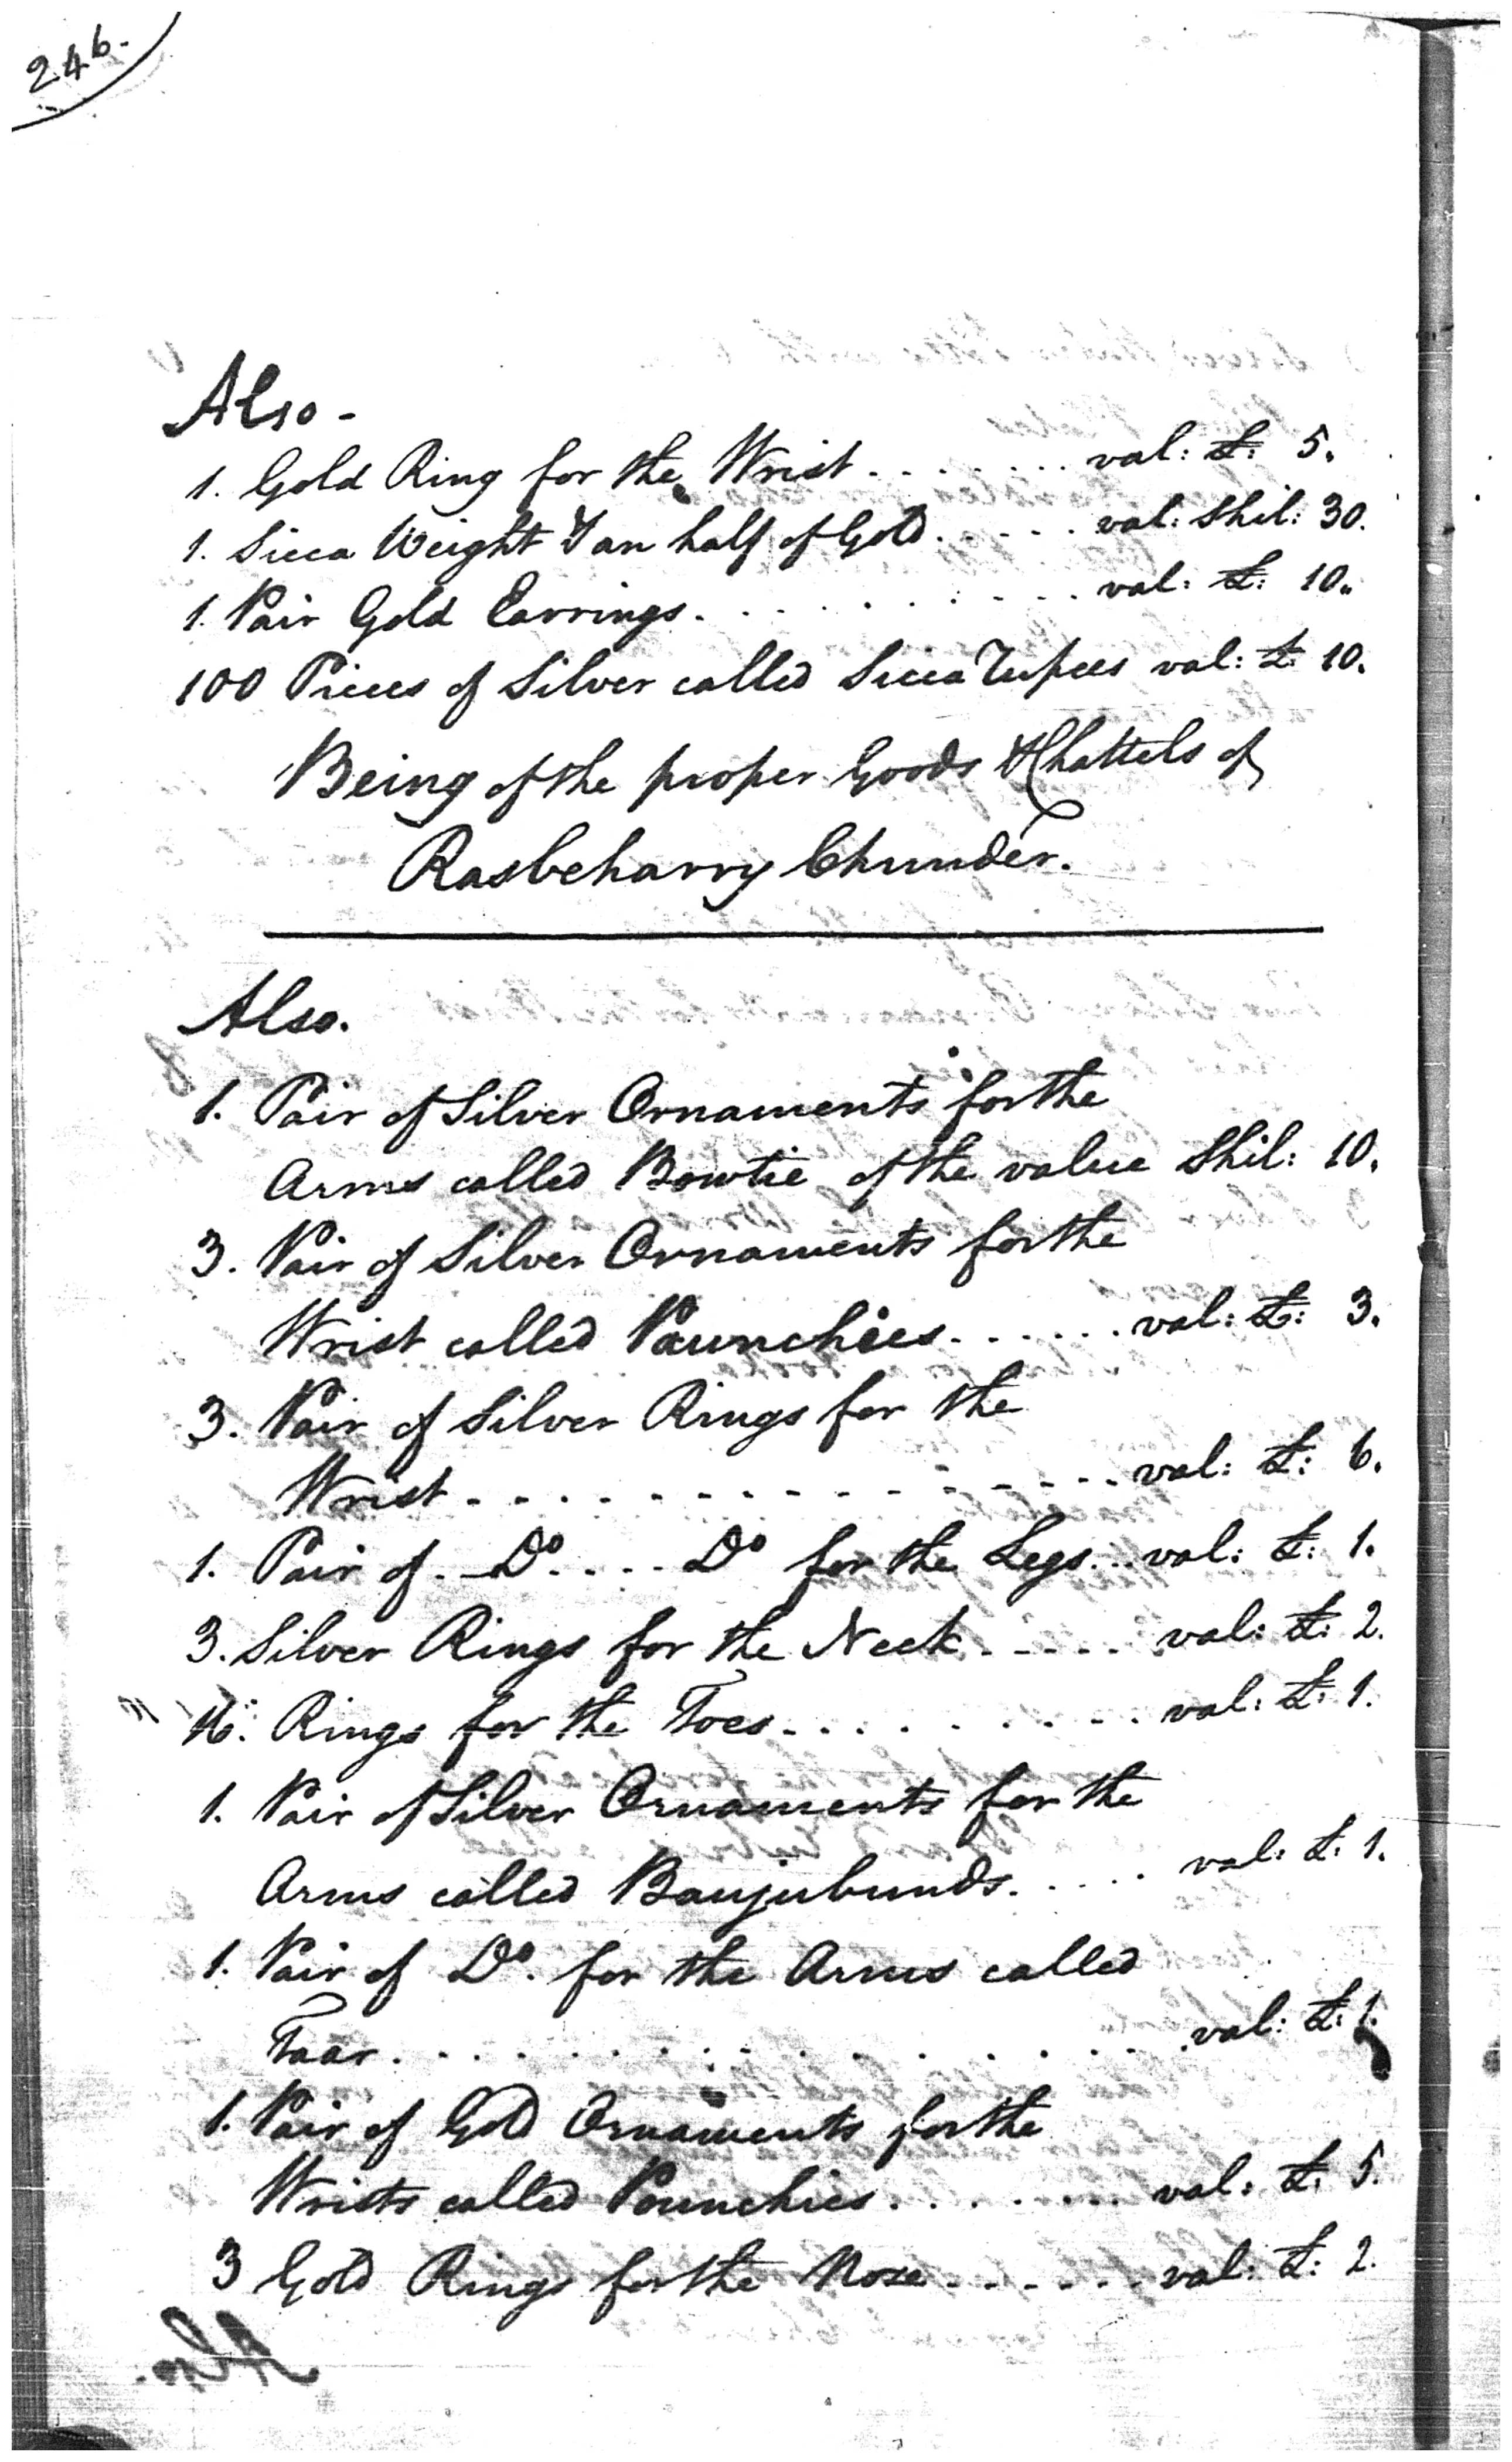 246.
Also -
1. Gold Ring for the Wrist . . . . . . . val: £: 5.
1. Sicca Weight & an half of Gold . . . . . val: Shil: 30.
1. Pair Gold Earrings . . . . . . . . . . val: £: 10.
100 Pieces of Silver called Sicca Rupees val: £ 10.
Being of the proper Goods & Chattels of
Rasbeharry Chunder.
Also.
1. Pair of Silver Ornaments for the
Arms called Bowtie of the value Shil: 10.
3. Pair of Silver Ornaments for the
Wrist called Paunchies . . . . . . val: £: 3.
3. Pair of Silver Rings for the
Wrist . . . . . . . . . . . . . . . val: £: 6.
1. Pair of . Do . . . . Do for the Legs . . val: £: 1.
3. Silver Rings for the Neck . . . . . val: £: 2.
16. Rings for the Toes . . . . . . . . . val: £: 1.
1. Pair of Silver Ornaments for the
Arms called Baujubunds . . . . . val: £: 1.
1. Pair of Do. for the Arms called
Taar . . . . . . . . . . . . . . . val: £: 1.
1. Pair of Gold Ornaments for the
Wrists called Pounchies . . . . . . val: £: 5.
3 Gold Rings for the Nose . . . . . . val: £: 2.